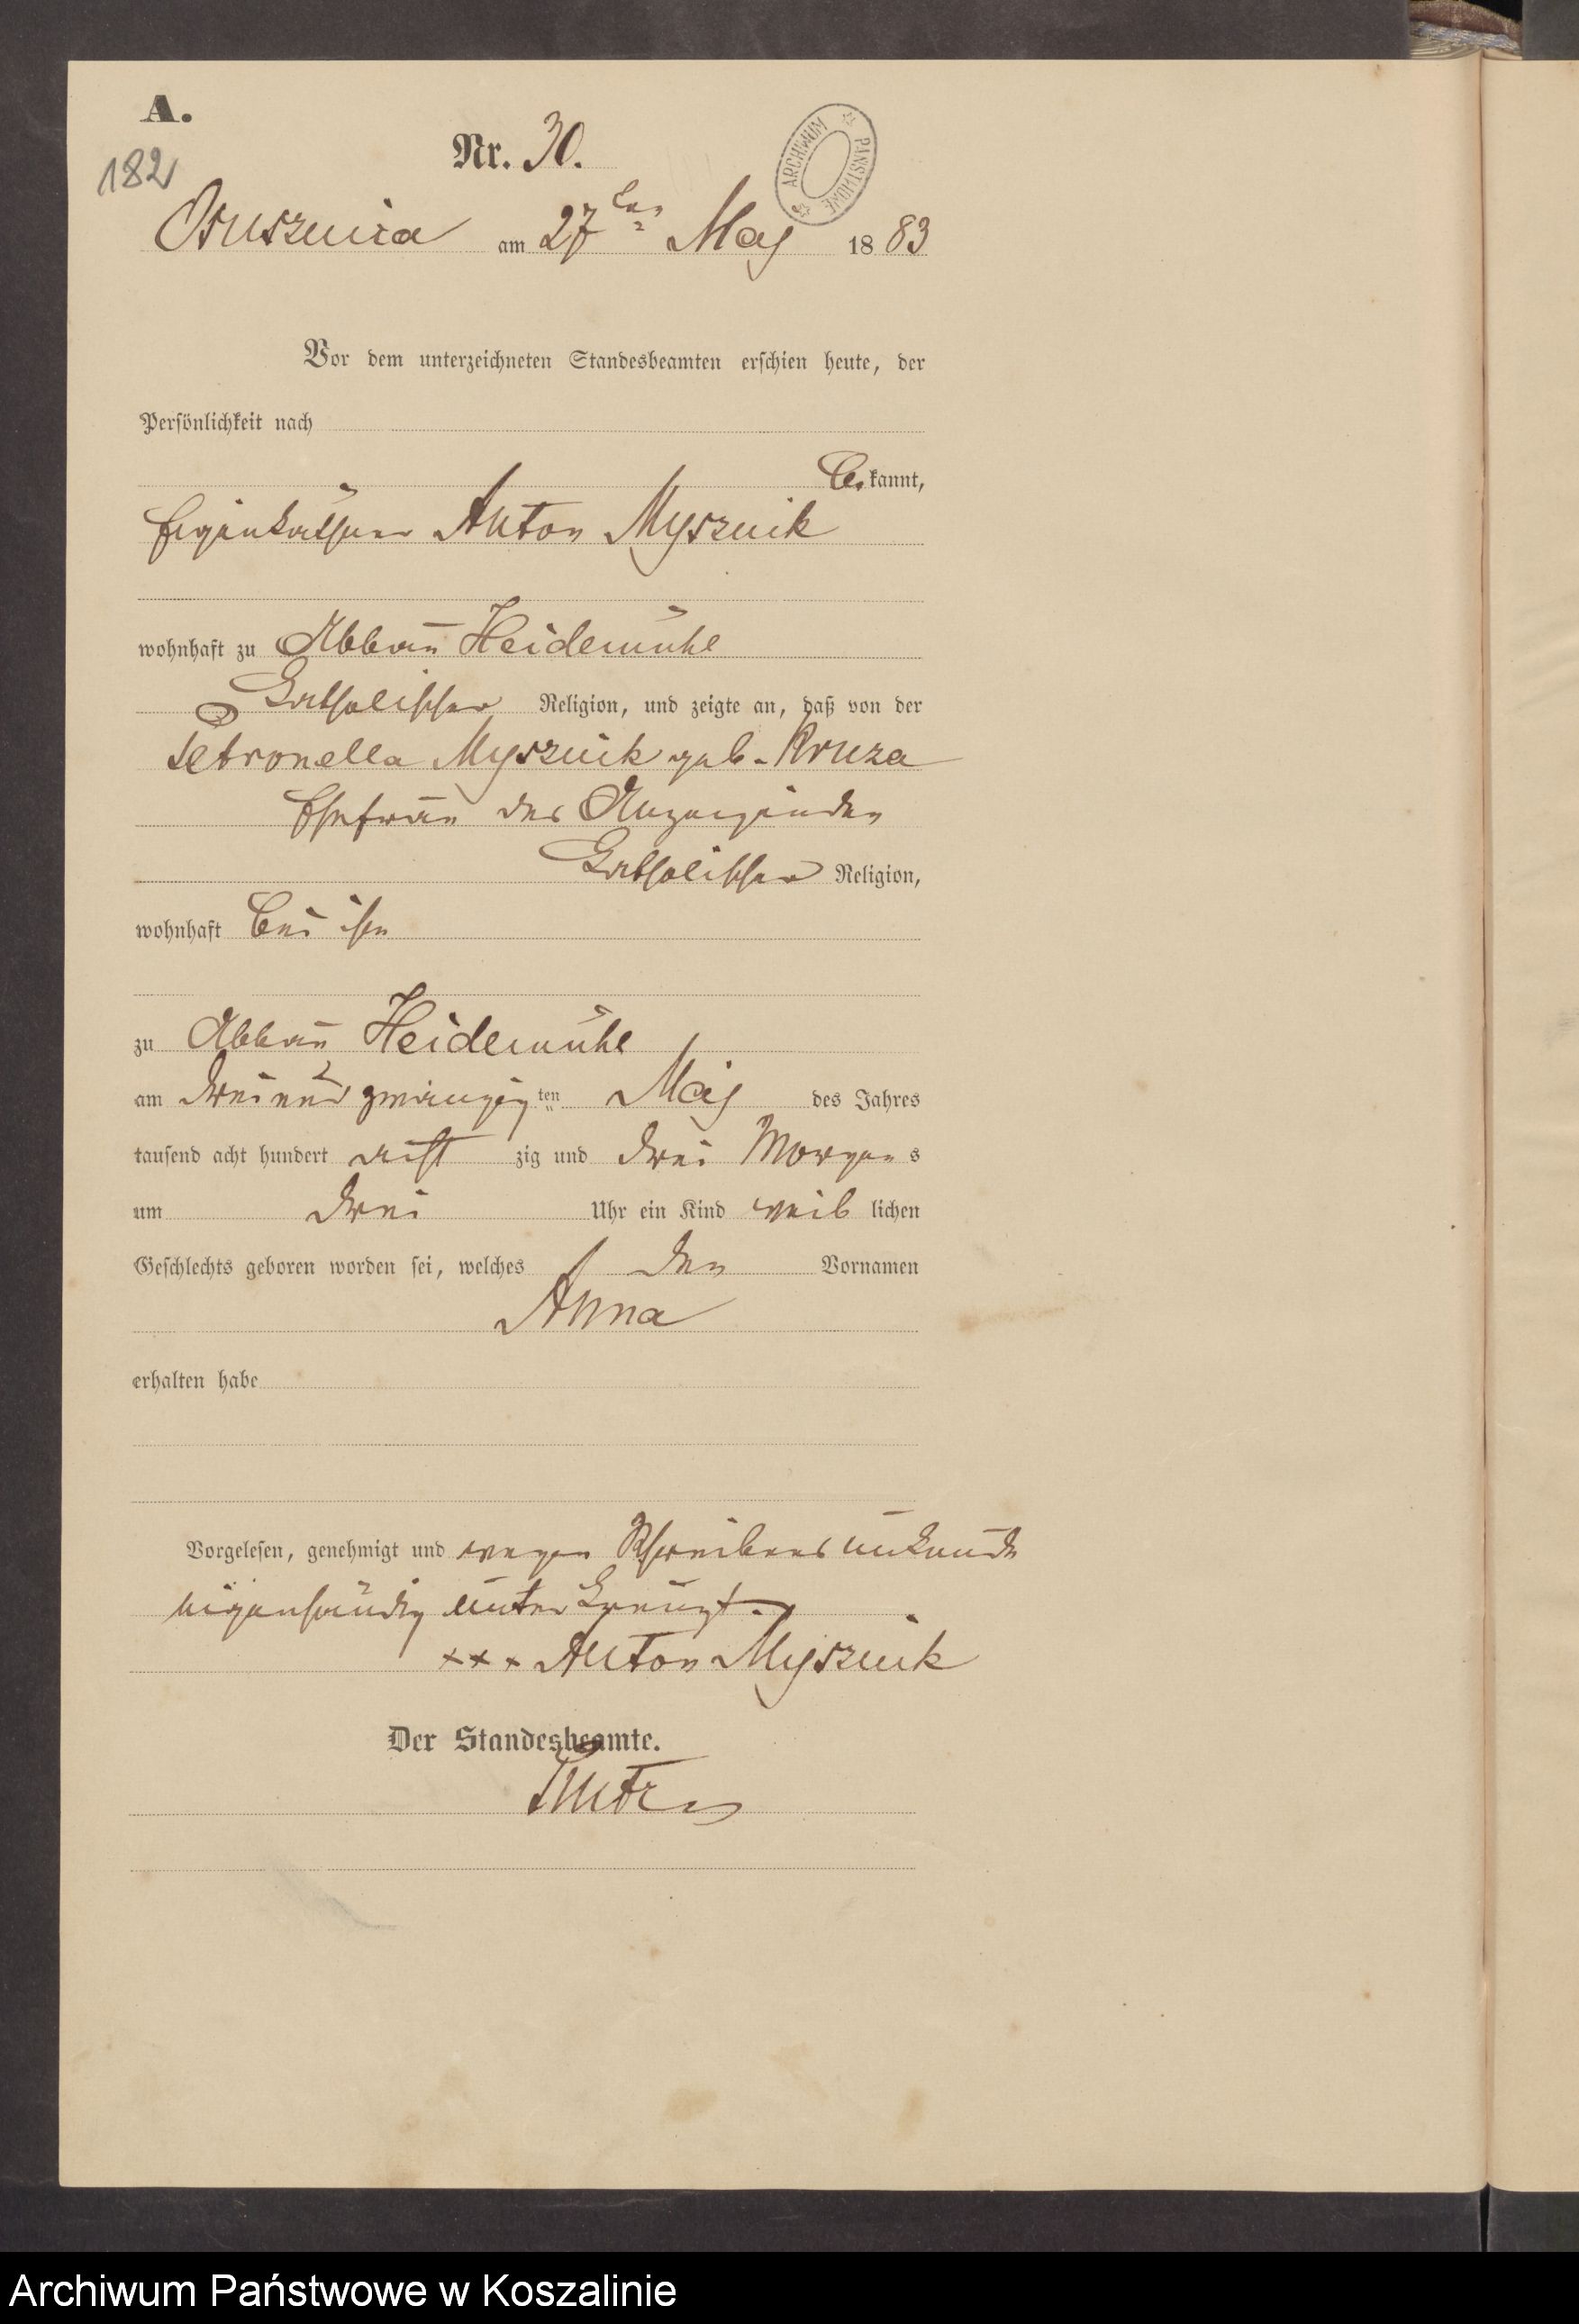 A.
182
Nr. 30.
ARCHIWUM PAŃSTWOWE
Osuszniza am 27ten May 1883
Vor dem unterzeichneten Standesbeamten erschien heute, der
Persönlichkeit nach
bekannt,
Eigenkäthner Anton Mysznik
wohnhaft zu Abbau Heidemühl
katholischer Religion, und zeigte an, daß von der
Petronella Mysznik geb. Kruza
Ehefrau des Anzeigenden
katholischer Religion,
wohnhaft bei ihm
zu Abbau Heidemühl
am dreiundzwanzigten May des Jahres
tausend acht hundert acht zig und drei Morgens
um drei Uhr ein Kind weiblichen
Geschlechts geboren worden sei, welches den Vornamen
Anna
erhalten habe
Vorgelesen, genehmigt und wegen Schreibensunkunde
eigenhändig unterkreuzt.
xxx Anton Mysznik
Der Standesbeamte.
Archiwum Państwowe w Koszalinie